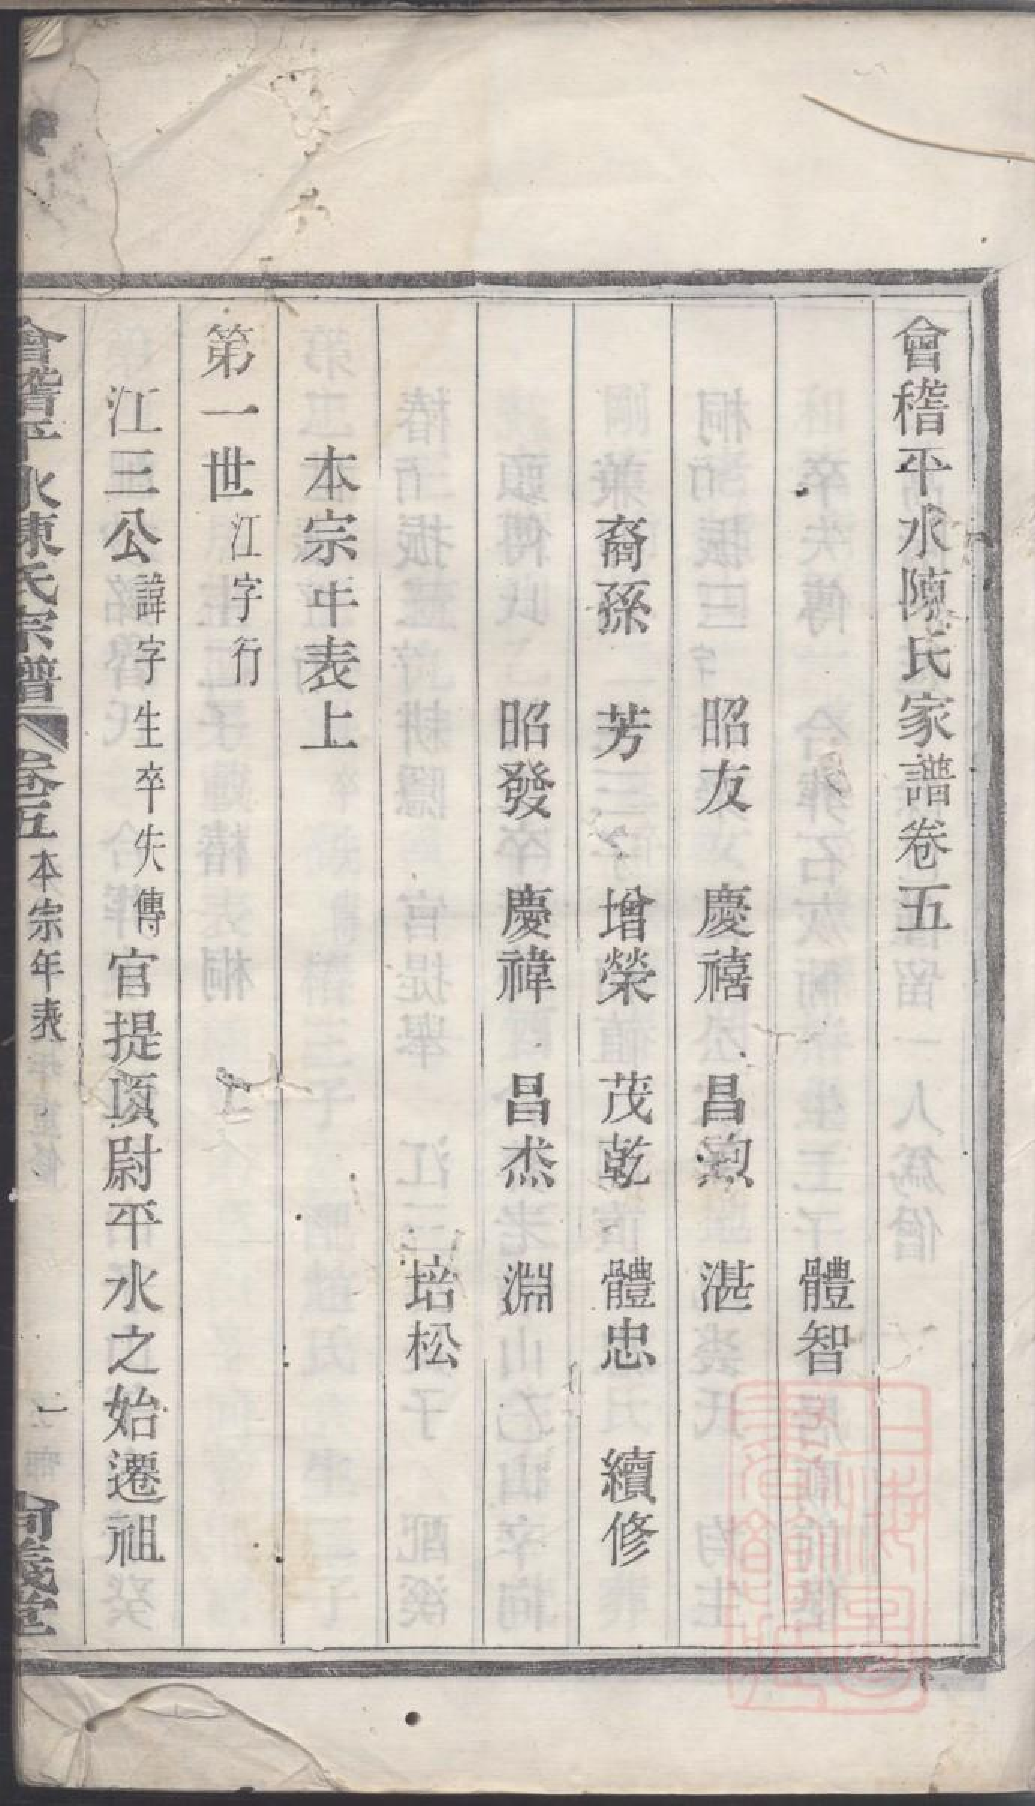 會稽平水陳氏家譜卷五
體智
昭友 慶禧 昌勲 湛
裔孫 芳 增榮 茂乾 體忠 續修
昭發 慶禕 昌杰 淵
培松
本宗年表上
第一世江字行
江三公諱字生卒失傳官提項尉平水之始遷祖
會稽平水陳氏宗譜 卷五 本宗年表 一 尚義堂